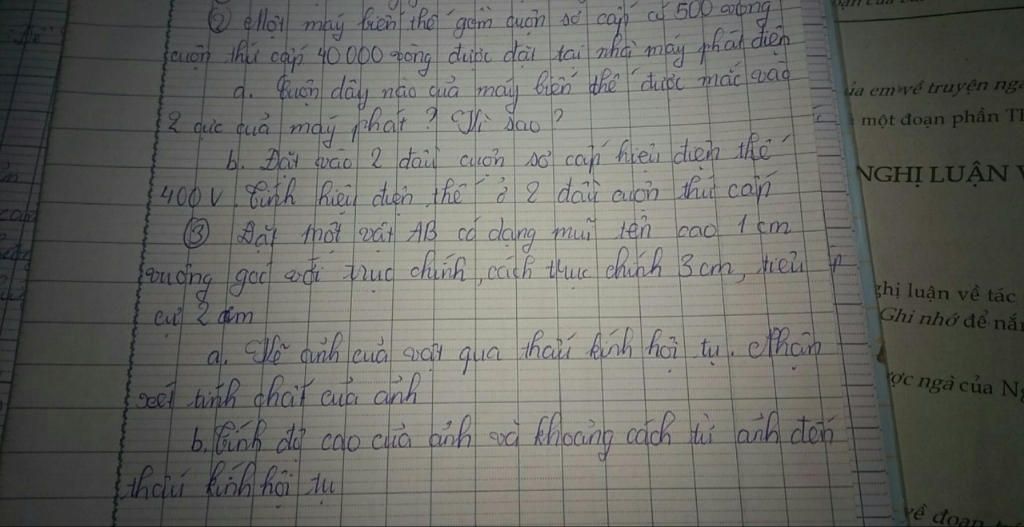 ② Một máy biến thế gồm cuộn sơ cấp có 500 vòng
cuộn thứ cấp 40 000 vòng được đặt tại nhà máy phát điện
a. Cuộn dây nào quả máy biến thế được mắc vào
2 cực quả máy phát? Vì sao?
b. Đặt vào 2 đầu cuộn sơ cấp hiệu điện thế
400V. Tính hiệu điện thế ở 2 đầu cuộn thứ cấp
③ Đặt một vật AB có dạng mũi tên cao 1cm
vuông góc với trục chính, cách trục chính 3cm, tiêu
cự 2cm
a. Vẽ ảnh của vật qua thấu kính hội tụ. Nhận
xét tính chất của ảnh
b. Tính độ cao của ảnh và khoảng cách từ ảnh đến
thấu kính hội tụ
ia em về truyện ng
một đoạn phần T
NGHỊ LUẬN V
ghị luận về tác
Ghi nhớ để nắ
ược ngà của N
về đoạn